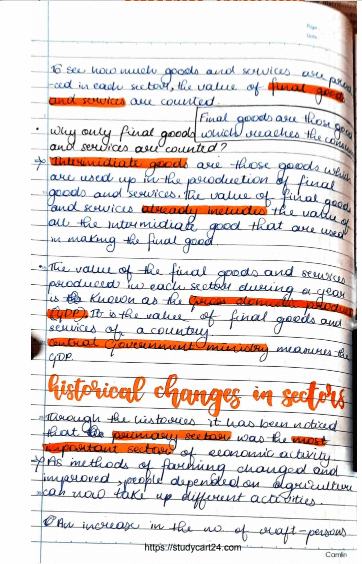 Page
Date
To see how much goods and services are prod
-ced in each sector, the value of final goods
and services are counted.
Final goods are those goo
which reaches the consu
• Why only final goods
and services are counted?
→ Intermediate goods are those goods which
are used up in the production of final
goods and services. The value of final goods
and services already includes the value of
all the intermediate good that are used
in making the final good.
• The value of the final goods and services
produced in each sector during a year
is known as the gross domestic product
(GDP). It is the value of final goods and
services of a country.
Central Government ministry measures the
GDP.
historical changes in sectors
Through the histories it has been noticed
that the primary sector was the most
important sector of economic activity.
→ As methods of farming changed and
improved, people depended on agriculture
can now take up different activities.
An increase in the no. of craft-persons
https://studycart24.com
Camlin